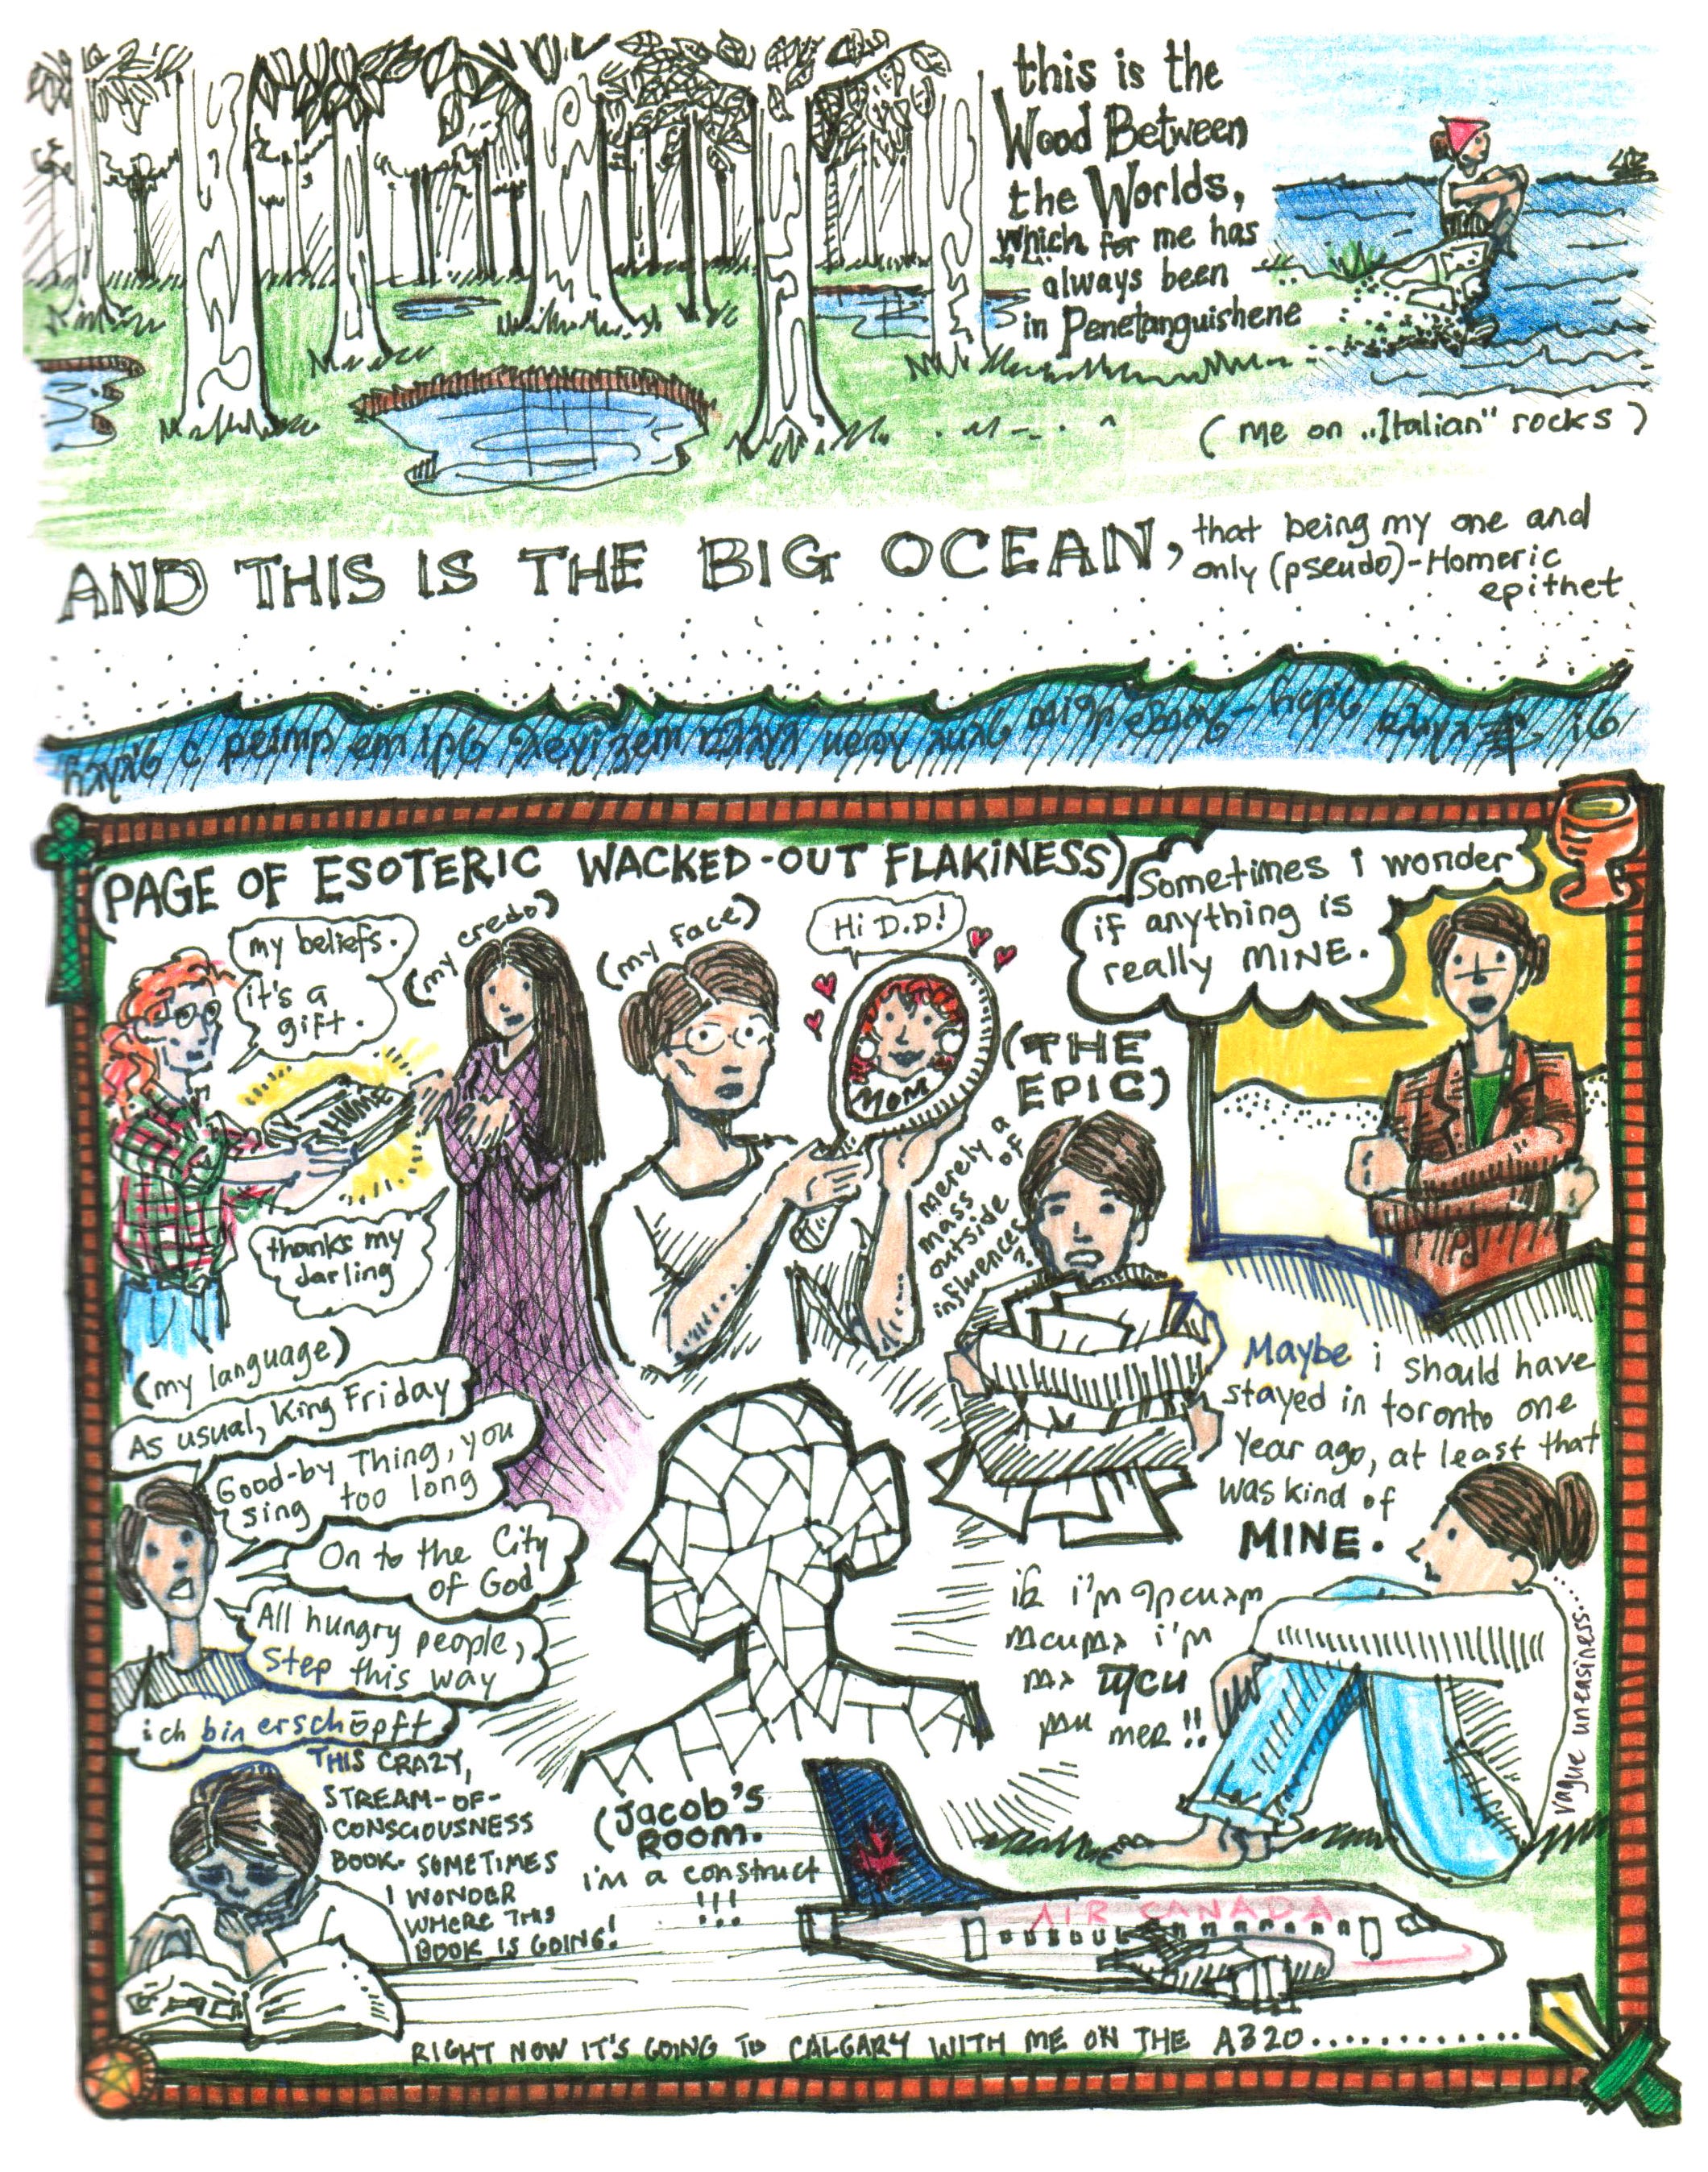 this is the
Wood Between
the Worlds,
which for me has
always been
in Penetanguishene
(me on „Italian" rocks)
AND THIS IS THE BIG OCEAN,
that being my one and
only (pseudo)-Homeric
epithet
(PAGE OF ESOTERIC WACKED-OUT FLAKINESS)
my beliefs.
it's a
gift.
(my credo)
HUME
thanks my
darling
(my face)
Hi D.D!
MOM
(THE
EPIC)
merely a
mass of
outside
influences
?!
Sometimes i wonder
if anything is
really MINE.
Maybe i should have
stayed in toronto one
year ago, at least that
was kind of
MINE.
(my language)
As usual, King Friday
Good-by Thing, you
sing too long
On to the City
of God
All hungry people,
step this way
ich bin erschöpft
THIS CRAZY,
STREAM-OF-
CONSCIOUSNESS
BOOK. SOMETIMES
I WONDER
WHERE THIS
BOOK IS GOING!
(Jacob's
ROOM.
i'm a construct
!!!
i'm
i'm
!!
vague uneasiness...
AIR CANADA
RIGHT NOW IT'S GOING TO CALGARY WITH ME ON THE A320............